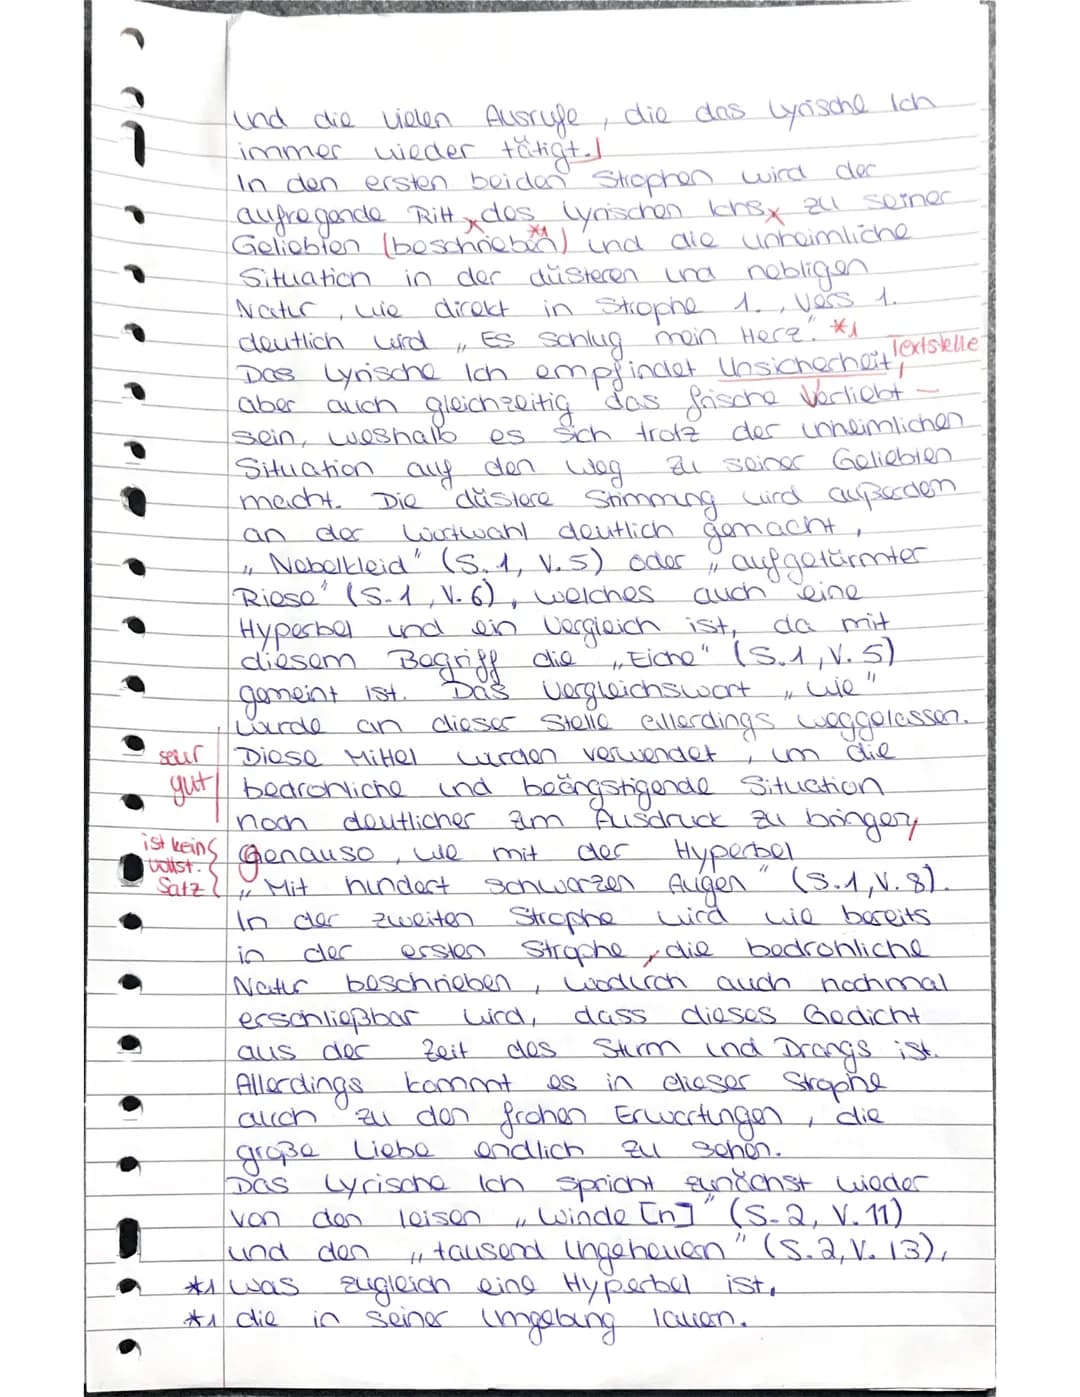 und die vielen Ausrufe, die das Lyrische Ich
immer wieder tätigt.
In den ersten beiden Strophen wird der
aufregende Ritt x des Lyrischen Ichs x zu seiner
Geliebten (beschrieben) *1 und die unheimliche
Situation in der düsteren und nebligen
Natur, wie direkt in Strophe 1., Vers 1.
deutlich wird „Es schlug mein Herz". *1
Das Lyrische Ich empfindet Unsicherheit, Textstelle
aber auch gleichzeitig das frische Verliebt-
sein, weshalb es sich trotz der unheimlichen
Situation auf den Weg zu seiner Geliebten
macht. Die düstere Stimmung wird außerdem
an der Wortwahl deutlich gemacht,
„Nebelkleid" (S.1, V.5) oder „aufgetürmter
Riese" (S.1, V.6), welches auch eine
Hyperbel und ein Vergleich ist, da mit
diesem Begriff die „Eiche" (S.1, V.5)
gemeint ist. Das Vergleichswort „wie"
wurde an dieser Stelle allerdings weggelassen.
sehr Diese Mittel wurden verwendet, um die
gut bedrohliche und beängstigende Situation
noch deutlicher zum Ausdruck zu bringen,
ist kein genauso, wie mit der Hyperbel
vollst. Satz „Mit hundert schwarzen Augen" (S.1, V.8).
In der zweiten Strophe wird wie bereits
in der ersten Strophe, die bedrohliche
Natur beschrieben, wodurch auch nochmal
erschließbar wird, dass dieses Gedicht
aus der Zeit des Sturm und Drangs ist.
Allerdings kommt es in dieser Strophe
auch zu den frohen Erwartungen, die
große Liebe endlich zu sehen.
Das Lyrische Ich spricht zunächst wieder
von den leisen „Winde[n]" (S.2, V.11)
und den „tausend Ungeheuern" (S.2, V.13),
*1 was zugleich eine Hyperbel ist,
*1 die in seiner Umgebung lauern.